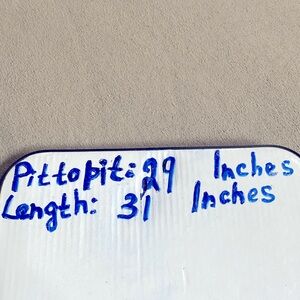 Pittopit: 29 Inches
Length: 31 Inches